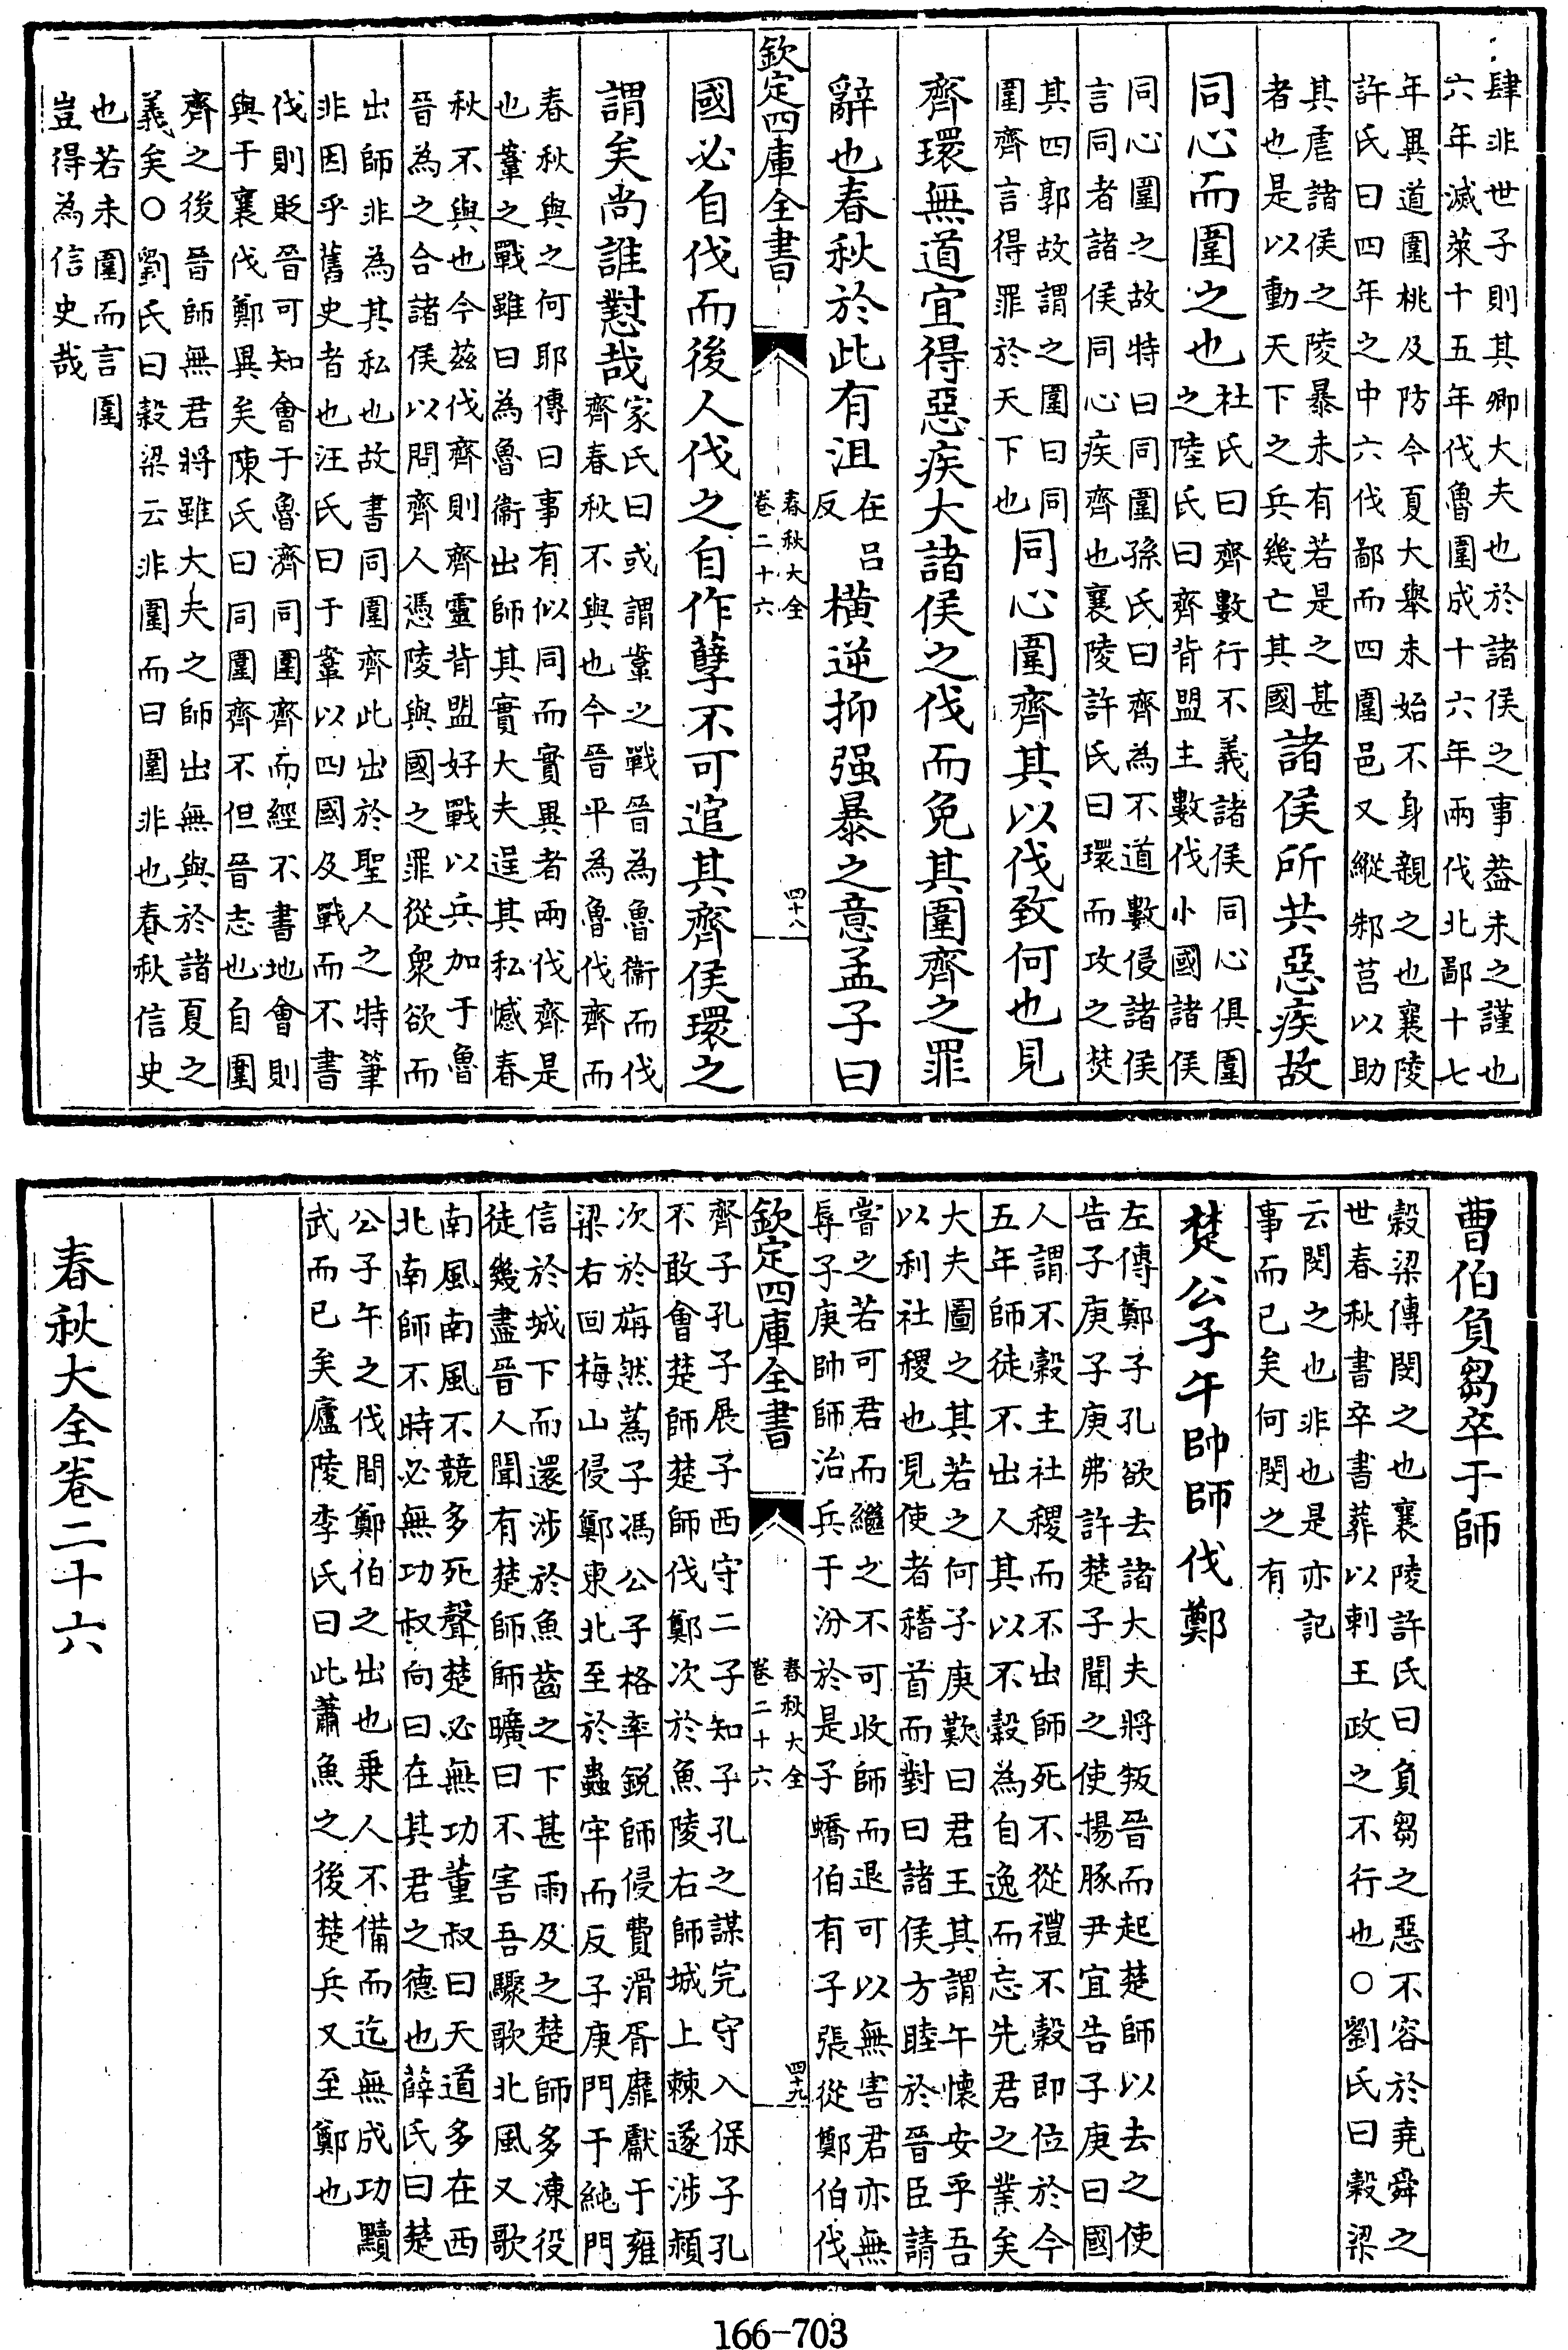 肆非世子則其卿大夫也於諸侯之事益未之謹也
六年滅萊十五年伐魯圍成十六年兩伐北鄙十七
年異道圍桃及防今夏大舉未始不身親之也襄陵
許氏曰四年之中六伐鄙而四圍邑又縱邾莒以助
其虐諸侯之陵暴未有若是之甚
者也是以動天下之兵幾亡其國
諸侯所共惡疾故
同心而圍之也
杜氏曰齊數行不義諸侯同心俱圍
之陸氏曰齊背盟主數伐小國諸侯
同心圍之故特曰同圍孫氏曰齊為不道數侵諸侯
言同者諸侯同心疾齊也襄陵許氏曰環而攻之焚
其四郭故謂之圍曰同
圍齊言得罪於天下也
同心圍齊其以伐致何也見
齊環無道宜得惡疾大諸侯之伐而免其圍齊之罪
辭也春秋於此有沮
在呂
反
橫逆抑强暴之意孟子曰
欽定四庫全書
春秋大全
卷二十六
四十八
國必自伐而後人伐之自作孽不可逭其齊侯環之
謂矣尚誰懟哉
家氏曰或謂鞌之戰晉為魯衞而伐
齊春秋不與也今晉平為魯伐齊而
春秋與之何耶傳曰事有似同而實異者兩伐齊是
也鞌之戰雖曰為魯衞出師其實大夫逞其私憾春
秋不與也今茲伐齊則齊靈背盟好戰以兵加于魯
晉為之合諸侯以問齊人憑陵與國之罪從衆欲而
出師非為其私也故書同圍齊此出於聖人之特筆
非因乎舊史者也汪氏曰于鞌以四國及戰而不書
伐則貶晉可知會于魯濟同圍齊而經不書地會則
與于襄伐鄭異矣陳氏曰同圍齊不但晉志也自圍
齊之後晉師無君將雖大夫之師出無與於諸夏之
義矣○劉氏曰榖梁云非圍而曰圍非也春秋信史
也若未圍而言圍
豈得為信史哉
曹伯負芻卒于師
榖梁傳閔之也襄陵許氏曰負芻之惡不容於堯舜之
世春秋書卒書葬以刺王政之不行也○劉氏曰榖梁
云閔之也非也是亦記
事而已矣何閔之有
楚公子午帥師伐鄭
左傳鄭子孔欲去諸大夫將叛晉而起楚師以去之使
告子庚子庚弗許楚子聞之使揚豚尹宜告子庚曰國
人謂不榖主社稷而不出師死不從禮不榖即位於今
五年師徒不出人其以不榖為自逸而忘先君之業矣
大夫圖之其若之何子庚歎曰君王其謂午懷安乎吾
以利社稷也見使者稽首而對曰諸侯方睦於晉臣請
嘗之若可君而繼之不可收師而退可以無害君亦無
辱子庚帥師治兵于汾於是子蟜伯有子張從鄭伯伐
欽定四庫全書
春秋大全
卷二十六
四十九
齊子孔子展子西守二子知子孔之謀完守入保子孔
不敢會楚師楚師伐鄭次於魚陵右師城上棘遂涉潁
次於旃然蒍子馮公子格率銳師侵費滑胥靡獻于雍
梁右回梅山侵鄭東北至於蟲牢而反子庚門于純門
信於城下而還涉於魚齒之下甚雨及之楚師多凍役
徒幾盡晉人聞有楚師師曠曰不害吾驟歌北風又歌
南風南風不競多死聲楚必無功董叔曰天道多在西
北南師不時必無功叔向曰在其君之德也薛氏曰楚
公子午之伐間鄭伯之出也乗人不備而迄無成功黷
武而已矣廬陵李氏曰此蕭魚之後楚兵又至鄭也
春秋大全卷二十六
166-703